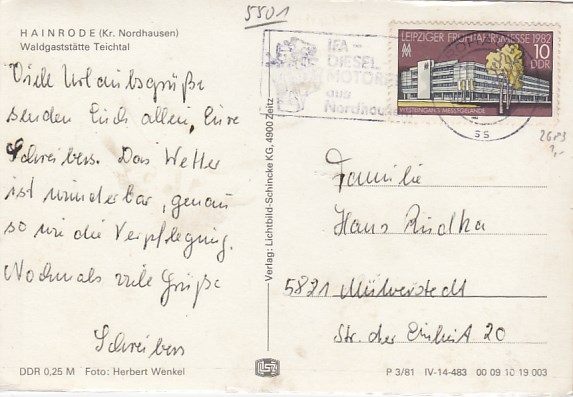 5501
HAINRODE (Kr. Nordhausen)
Waldgaststätte Teichtal
Viele Urlaubsgrüße
senden Euch allen, Eure
Schreibers. Das Wetter
ist wunderbar, genau
so wie die Verpflegung.
Nochmals viele Grüße
Schreibers
DDR 0,25 M Foto: Herbert Wenkel
Verlag: Lichtbild-Schincke KG, 4900 Zeitz
IFA -
DIESEL
MOTORE
aus
Nordhausen
LEIPZIGER FRÜHJAHRSMESSE 1982
10
DDR
MESSEGELÄNDE
ss
2683
Familie
Hans
5821 Mülverstedt
Str. der Einheit 20
P 3/81 IV-14-483 00 09 10 19 003